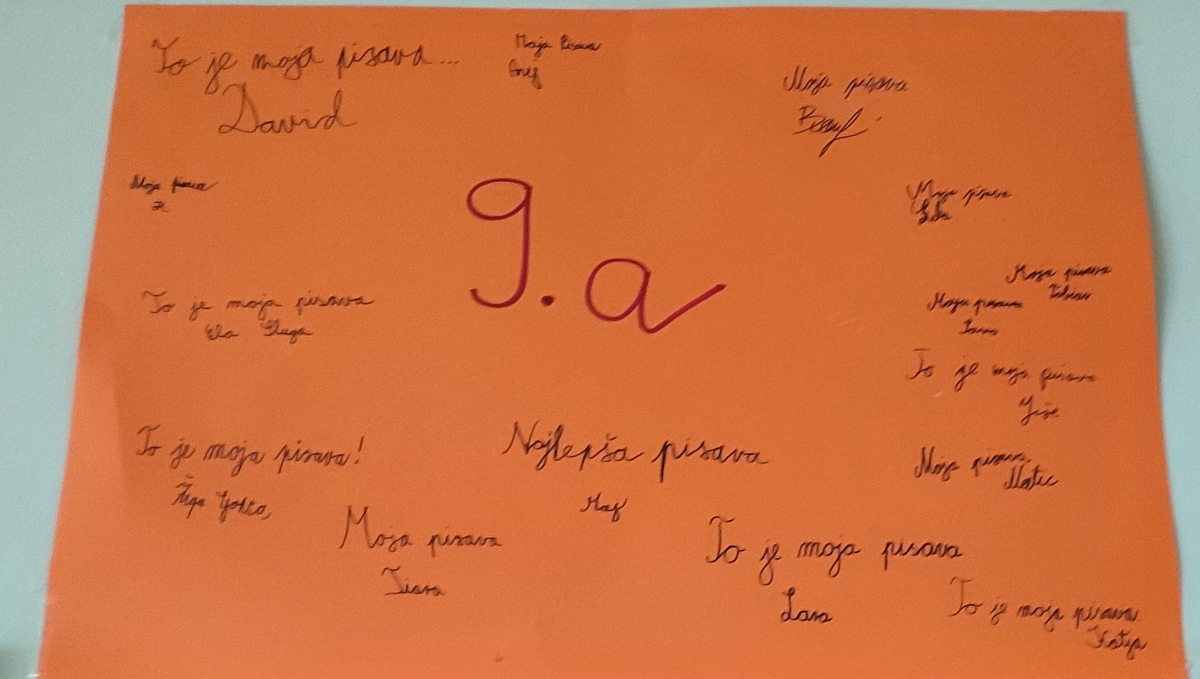 To je moja pisava...
David
Moja Pisava
Moja pisava
Moja pisava
9.a
Moja pisava
Moja pisava
Moja pisava
To je moja pisava
Ela
To je moja pisava
To je moja pisava!
Žiga
Najlepša pisava
Moja pisava
Matic
Moja pisava
Tiara
To je moja pisava
Lara
To je moja pisava
Katja